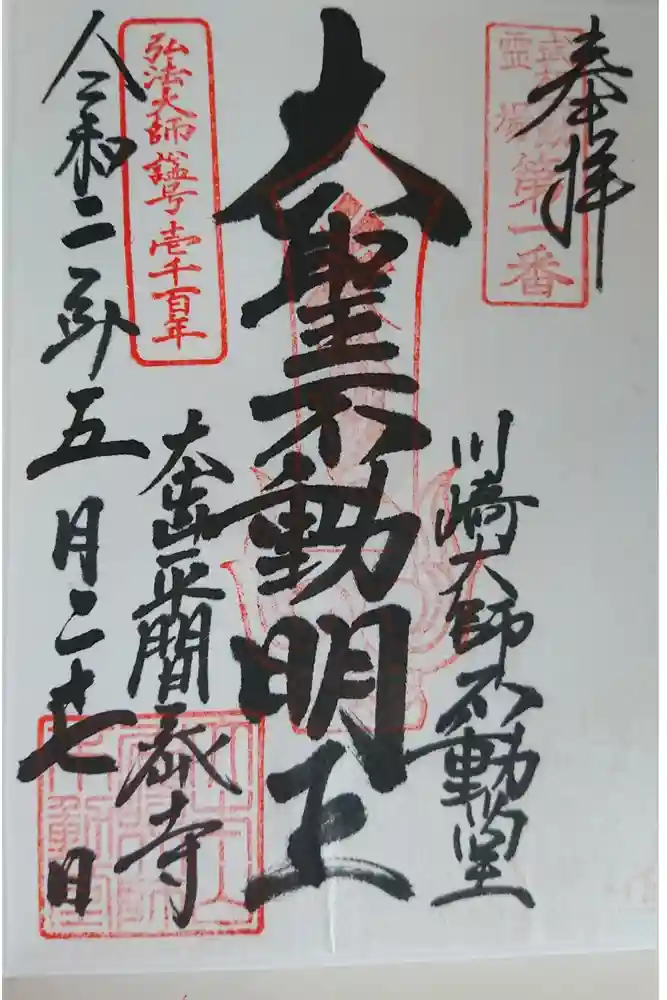 奉拝
第一番
霊場
川崎大師不動堂
大聖不動明王
弘法大師諡号壱千百年
大本山平間寺
令和二年五月二十七日